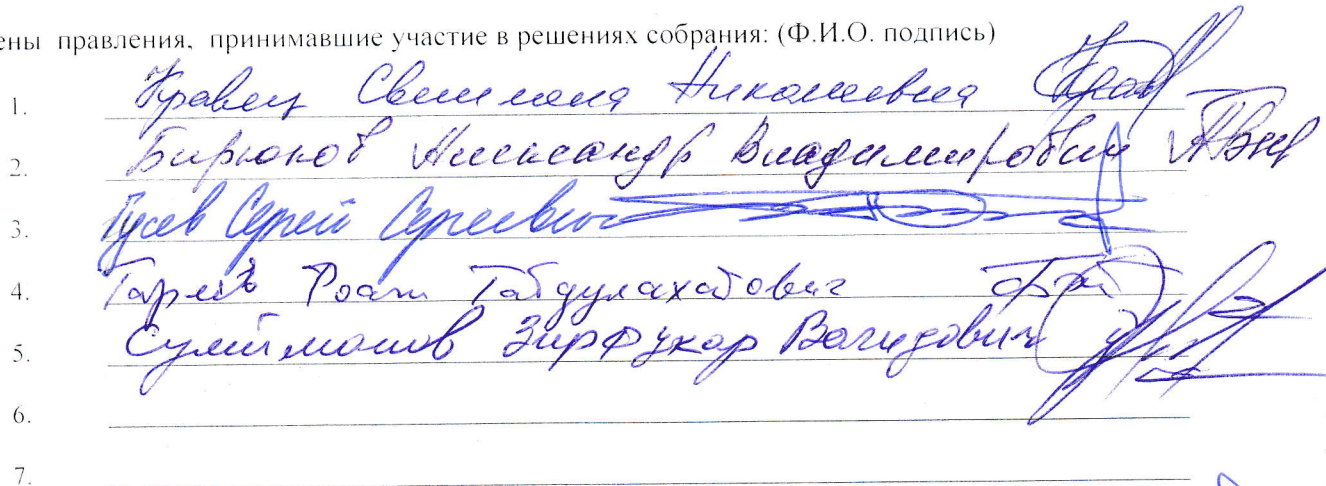 ены правления, принимавшие участие в решениях собрания: (Ф.И.О. подпись)
1. Кравец Светлана Николаевна
2. Бирюков Александр Владимирович
3. Гусев Сергей Сергеевич
4. Гареев Габдулахатович
5. Сулейманов Зирфукар Вагидович
6.
7.